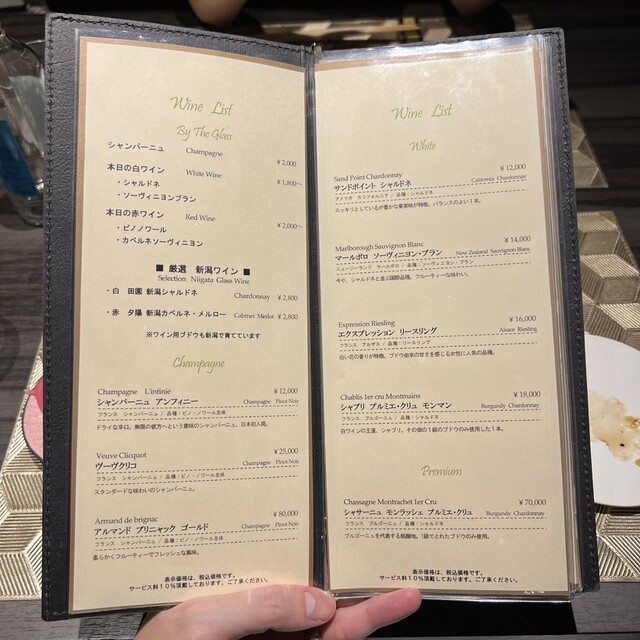 Wine List
By The Glass
シャンパーニュ Champagne ¥2,000
本日の白ワイン White Wine ¥1,800〜
・シャルドネ
・ソーヴィニヨンブラン
本日の赤ワイン Red Wine ¥2,000〜
・ピノノワール
・カベルネソーヴィニヨン
■ 厳選 新潟ワイン ■
Selection Niigata Glass Wine
・白 田園 新潟シャルドネ Chardonnay ¥2,800
・赤 夕陽 新潟カベルネ・メルロー Cabrnet Merlot ¥2,800
※ワイン用ブドウも新潟で育てています
Champagne
Champagne L'infinie ¥12,000
シャンパーニュ アンフィニー Champagne Pinot Noir
フランス シャンパーニュ / 品種：ピノ・ノワール主体
ドライな辛口。無限の彼方へという意味のシャンパーニュ。日本初入荷。
Veuve Clicquot ¥25,000
ヴーヴクリコ Champagne Pinot Noir
フランス シャンパーニュ / 品種：ピノ・ノワール主体
スタンダードな味わいのシャンパーニュ。
Armand de brignac ¥80,000
アルマンド ブリニャック ゴールド Champagne Pinot Noir
フランス シャンパーニュ / 品種：ピノ・ノワール主体
柔らかくフルーティーでフレッシュな風味。
表示価格は、税込価格です。
サービス料10％頂戴しております。ご了承ください。
Wine List
White
Sand Point Chardonnay ¥12,000
サンドポイント シャルドネ California Chardonnay
アメリカ カリフォルニア / 品種：シャルドネ
スッキリとしているが豊かな果実味が特徴。バランスのよい1本。
Marlborough Sauvignon Blanc ¥14,000
マールボロ ソーヴィニヨン・ブラン New Zealand Sauvignon Blanc
ニュージーランド マールボロ / 品種：ソーヴィニヨン・ブラン
今や、シャルドネと並ぶ国際品種。フルーティーな味わい。
Expression Riesling ¥16,000
エクスプレッション リースリング Alsace Riesling
フランス アルザス / 品種：リースリング
白い花の香りが特徴。ブドウ由来の甘さを感じる女性に人気の品種。
Chablis 1er cru Montmains ¥18,000
シャブリ プルミエ・クリュ モンマン Burgundy Chardonnay
フランス ブルゴーニュ / 品種：シャルドネ
白ワインの王道、シャブリ。その他の1級のブドウのみ使用した1本。
Premium
Chassagne Montrachet 1er Cru ¥70,000
シャサーニュ モンラッシェ プルミエ・クリュ Burgundy Chardonnay
フランス ブルゴーニュ / 品種：シャルドネ
ブルゴーニュを代表する銘醸地。1級でとれたブドウのみ使用。
表示価格は、税込価格です。
サービス料10％頂戴しております。ご了承ください。